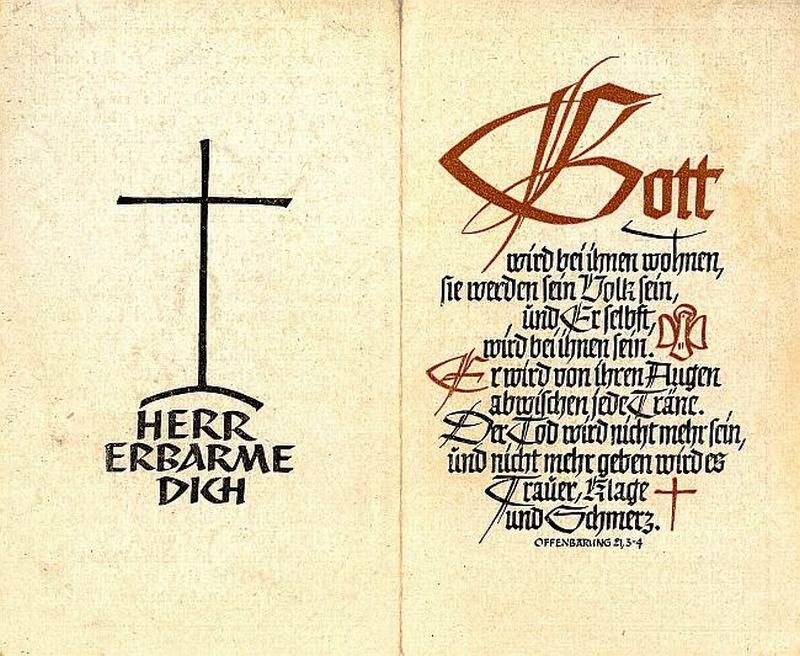 HERR
ERBARME
DICH
Gott
wird bei ihnen wohnen,
sie werden sein Volk sein,
und Er selbst,
wird bei ihnen sein.
Er wird von ihren Augen
abwischen jede Träne.
Der Tod wird nicht mehr sein,
und nicht mehr geben wird es
Trauer, Klage
und Schmerz.
OFFENBARUNG 21,3-4